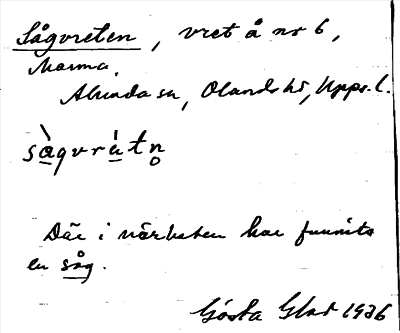 Sågvreten, vret å nr 6,
Marma,
Alunda sn, Olands hd, Upps. l.
sàgvrètn̥
Där i närheten har funnits
en såg.
Gösta Glad 1936